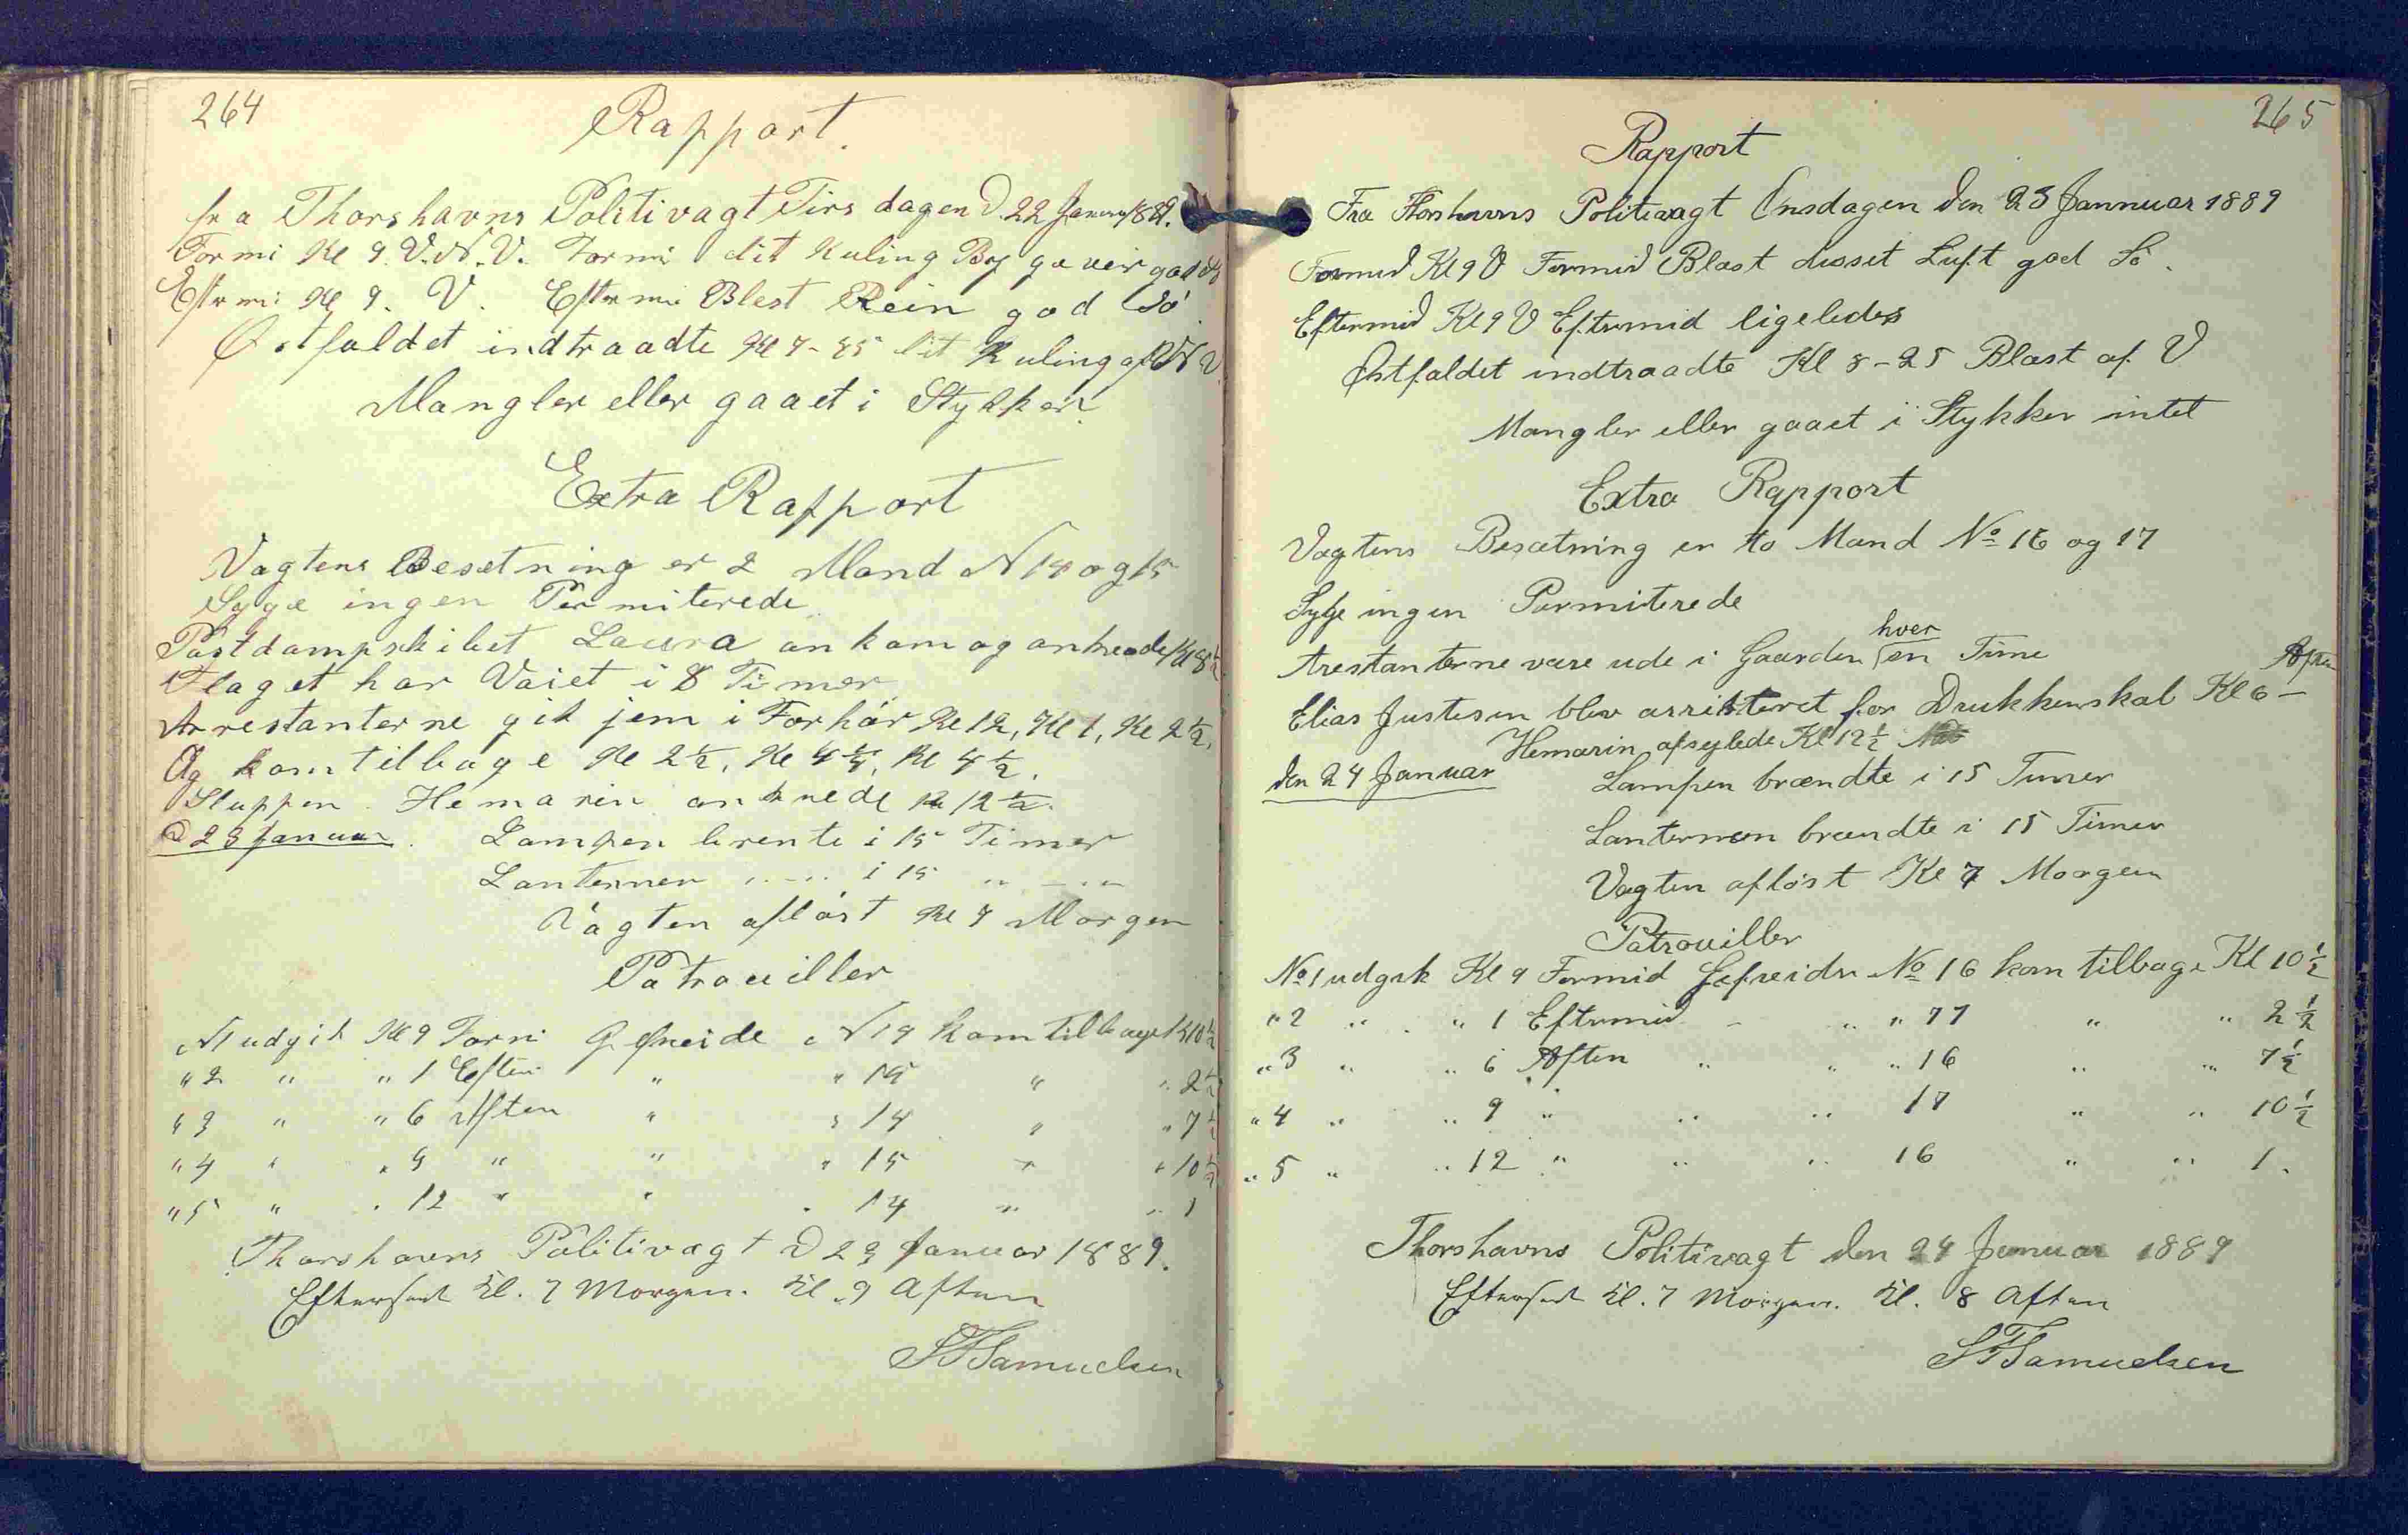 264
Rapport.
fra Thorshavns Politivagt Tirsdagen D. 22 January 1889.
Formi Kl 9. V.N.V. Formi lit Kuling Byge veir god Sö
Eftrmi Kl 9. V. Eftrmi Blest Rein god Sö
Östfaldet indtraadte Kl 7-35 lit Kuling af V N V
Mangler eller gaaet i Stykker.
Extra Rapport
Vagtens Besetning er 2 Mand N 14 og 15
Syge ingen Permiterede
Postdampskibet Laura ankom og ankrede Kl 8½
Flaget har Vaiet i 8 Timer
Arrestanterne gik jem i Forhör Kl 12, Kl 1, Kl 2½,
Og kom tilbage Kl 2½, Kl 4¼, Kl 4½.
Sluppen Hemarin ankrede Kl 12½.
D 23 Januar. Lampen brente i 15 Timer
Lanternen " — " i 15 " — "
Vagten aflöst Kl 7 Morgen
Patrouiller
N1 udgik Kl 9 Formi Gefreide N 14 kom tilbage Kl 10½
" 2 " " 1 Eftmi " " 15 " " 2½
" 3 " " 6 Aften " " 14 " " 7½
" 4 " " 9 " " " 15 " " 10½
" 5 " " 12 " " " 14 " " 1
Thorshavns Politivagt D 23 Januar 1889.
Efterseet Kl. 7 Morgen. Kl. 9 Aften
SFSamuelsen
265
Rapport
Fra Thorshavns Politivagt Onsdagen den 23 Jannuar 1889
Formid Kl 9 V Formid Blæst disset Luft god Sö.
Eftermid Kl 9 V Eftermid ligeledes
Østfaldet indtraadte Kl 8-25 Blæst af V
Mangler eller gaaet i Stykker intet
Extra Rapport
Vagtens Besætning er to Mand No 16 og 17
Syge ingen Permiterede
Arestanterne vare ude i Gaarden hver en Time
Elias Justesen blev arristeret for Drukkenskab Kl 6 — Aften
Hemarin afseglede Kl 12½
den 24 Januar Lampen brændte i 15 Timer
Lanternen brændte i 15 Timer
Vagten afløst Kl 7 Morgen
Patrouiller
No 1 udgik Kl 9 Formid Gefreider No 16 kom tilbage Kl 10½
" 2 " " 1 Eftermid " " " 17 " " 2½
" 3 " " 6 Aften " " " 16 " " 7½
" 4 " " 9 " " " 17 " " 10½
" 5 " " 12 " " " 16 " " 1.
Thorshavns Politivagt den 24 Januar 1889
Efterseet Kl. 7 Morgen. Kl. 8 Aften
SFSamuelsen